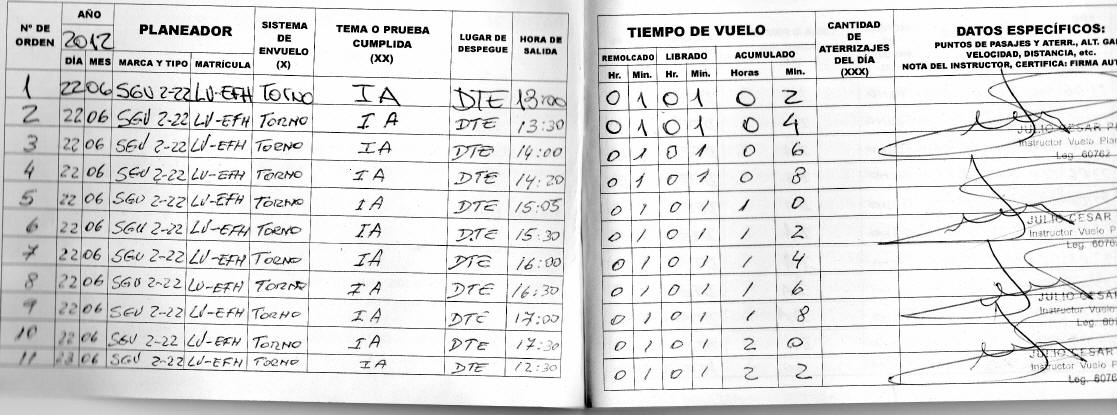 Nº DE ORDEN AÑO 2012 DÍA MES PLANEADOR MARCA Y TIPO MATRÍCULA SISTEMA DE ENVUELO (X) TEMA O PRUEBA CUMPLIDA (XX) LUGAR DE DESPEGUE HORA DE SALIDA
1 22 06 SGU 2-22 LV-EFH TORNO IA DTE 13:00
2 22 06 SGU 2-22 LV-EFH TORNO IA DTE 13:30
3 22 06 SGU 2-22 LV-EFH TORNO IA DTE 14:00
4 22 06 SGU 2-22 LV-EFH TORNO IA DTE 14:20
5 22 06 SGU 2-22 LV-EFH TORNO IA DTE 15:05
6 22 06 SGU 2-22 LV-EFH TORNO IA DTE 15:30
7 22 06 SGU 2-22 LV-EFH TORNO IA DTE 16:00
8 22 06 SGU 2-22 LV-EFH TORNO IA DTE 16:30
9 22 06 SGU 2-22 LV-EFH TORNO IA DTE 17:00
10 22 06 SGU 2-22 LV-EFH TORNO IA DTE 17:30
11 23 06 SGU 2-22 LV-EFH TORNO IA DTE 12:30
TIEMPO DE VUELO
REMOLCADO LIBRADO ACUMULADO
Hr. Min. Hr. Min. Horas Min.
CANTIDAD DE ATERRIZAJES DEL DÍA (XXX)
DATOS ESPECÍFICOS:
PUNTOS DE PASAJES Y ATERR., ALT.
VELOCIDAD, DISTANCIA, etc.
NOTA DEL INSTRUCTOR, CERTIFICA: FIRMA
0 1 0 1 0 2
0 1 0 1 0 4
0 1 0 1 0 6
0 1 0 1 0 8
0 1 0 1 1 0
0 1 0 1 1 2
0 1 0 1 1 4
0 1 0 1 1 6
0 1 0 1 1 8
0 1 0 1 2 0
0 1 0 1 2 2
JULIO CESAR
Instructor Vuelo
Leg. 60762
JULIO CESAR
Instructor Vuelo
Leg.
JULIO CESAR
Instructor Vuelo
Leg.
JULIO CESAR
Instructor Vuelo
Leg.